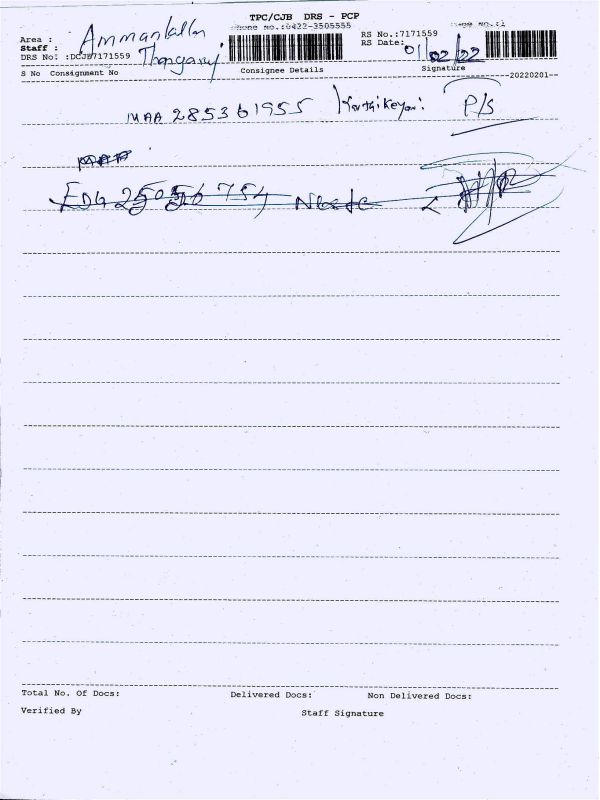 TPC/CJB DRS - PCP
Phone No.:0422-3505555
Page No.:1
Area :
Staff : Thangaraj
DRS No: :DCJB7171559
RS No.:7171559
RS Date: 01/02/22
S No Consignment No Consignee Details Signature
--20220201--
MAA 285361955 Karthikeyan: P/S
MAA
EDG 25056754
Total No. Of Docs: Delivered Docs: Non Delivered Docs:
Verified By Staff Signature